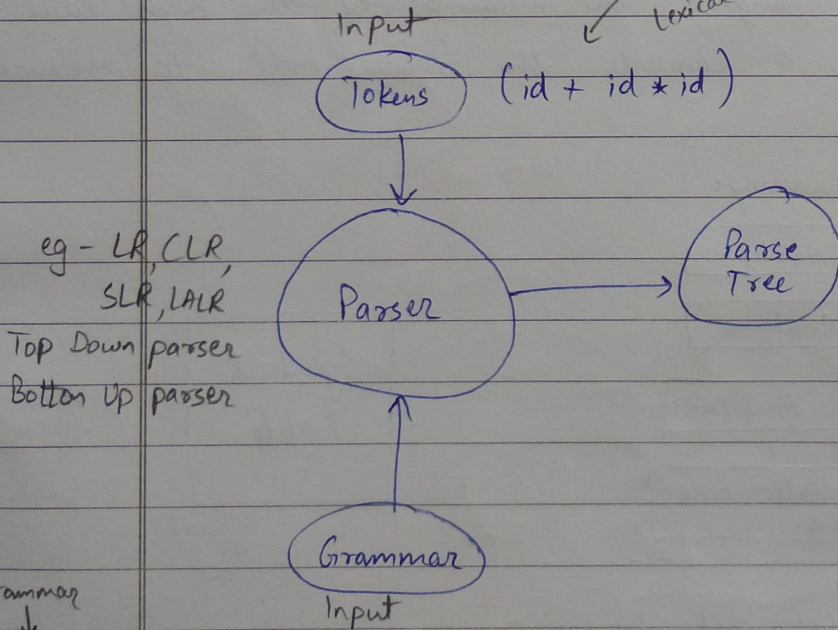 Input
Lexical
Tokens (id + id * id)
eg - LR, CLR,
SLR, LALR
Top Down parser
Botton Up parser
Parser
Parse
Tree
Grammar
Input